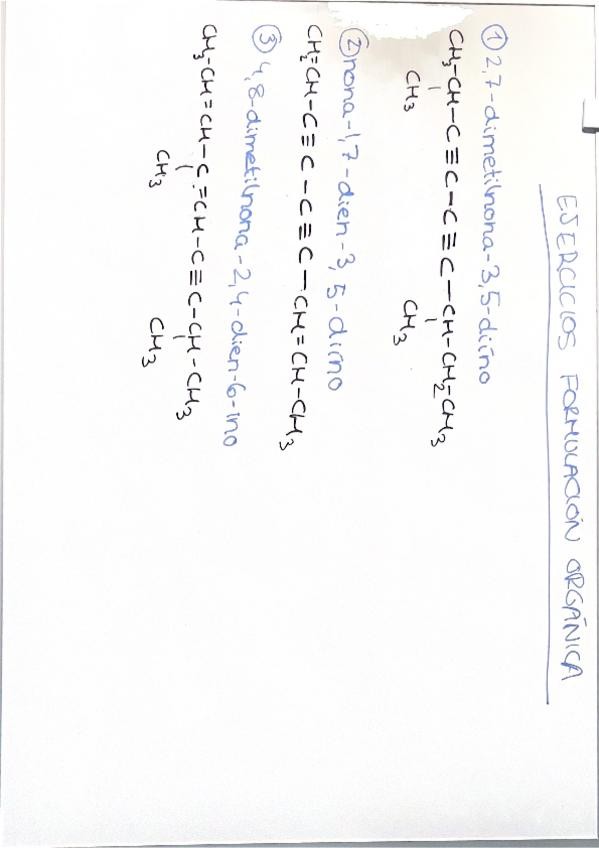 EJERCICIOS FORMULACIÓN ORGÁNICA
① 2,7-dimetilnona-3,5-diíno
CH3-CH-C≡C-C≡C-CH-CH2-CH3
CH3 CH3
② nona-1,7-dien-3,5-diíno
CH2=CH-C≡C-C≡C-CH=CH-CH3
③ 4,8-dimetilnona-2,4-dien-6-ino
CH3-CH=CH-C=CH-C≡C-CH-CH3
CH3 CH3